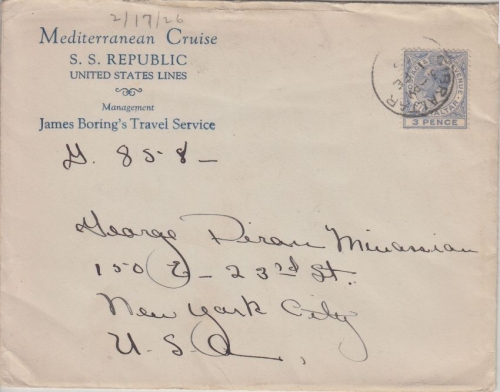 2/17/26
Mediterranean Cruise
S. S. REPUBLIC
UNITED STATES LINES
Management
James Boring's Travel Service
GIBRALTAR
3 PENCE
G. 858—
George Diran Minassian
150 E — 23rd St.
New York City
U. S. A.